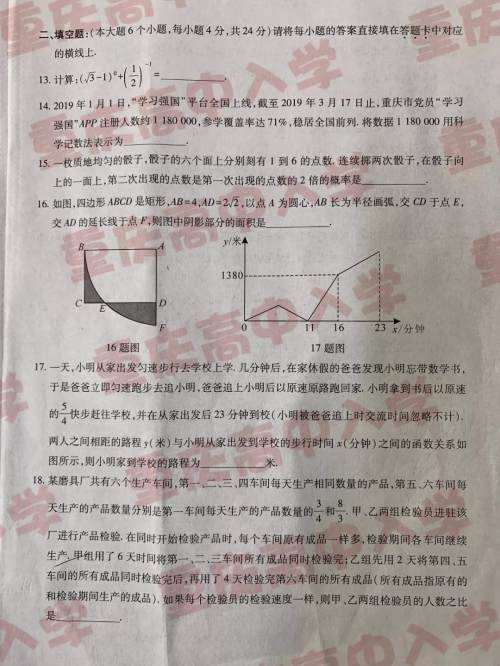 二、填空题:(本大题6个小题,每小题4分,共24分)请将每小题的答案直接填在答题卡中对应
的横线上.
13. 计算:(√3-1)⁰+(1/2)⁻¹=________.
14. 2019年1月1日,“学习强国”平台全国上线,截至2019年3月17日止,重庆市党员“学习
强国”APP注册人数约1 180 000,参学覆盖率达71%,稳居全国前列.将数据1 180 000用科
学记数法表示为________.
15. 一枚质地均匀的骰子,骰子的六个面上分别刻有1到6的点数.连续掷两次骰子,在骰子向
上的一面上,第二次出现的点数是第一次出现的点数的2倍的概率是________.
16. 如图,四边形ABCD是矩形,AB=4,AD=2√2,以点A为圆心,AB长为半径画弧,交CD于点E,
交AD的延长线于点F,则图中阴影部分的面积是________.
B A
C E D
F
16题图
y/米
1380
0 11 16 23 x/分钟
17题图
17. 一天,小明从家出发匀速步行去学校上学.几分钟后,在家休假的爸爸发现小明忘带数学书,
于是爸爸立即匀速跑步去追小明,爸爸追上小明后以原速原路跑回家.小明拿到书后以原速
的5/4快步赶往学校,并在从家出发后23分钟到校(小明被爸爸追上时交流时间忽略不计).
两人之间相距的路程y(米)与小明从家出发到学校的步行时间x(分钟)之间的函数关系如
图所示,则小明家到学校的路程为________米.
18. 某磨具厂共有六个生产车间,第一、二、三、四车间每天生产相同数量的产品,第五、六车间每
天生产的产品数量分别是第一车间每天生产的产品数量的3/4和8/3.甲、乙两组检验员进驻该
厂进行产品检验.在同时开始检验产品时,每个车间原有成品一样多,检验期间各车间继续
生产.甲组用了6天时间将第一、二、三车间所有成品同时检验完;乙组先用2天将第四、五
车间的所有成品同时检验完后,再用了4天检验完第六车间的所有成品(所有成品指原有的
和检验期间生产的成品).如果每个检验员的检验速度一样,则甲、乙两组检验员的人数之比
是________.
重庆高中入学